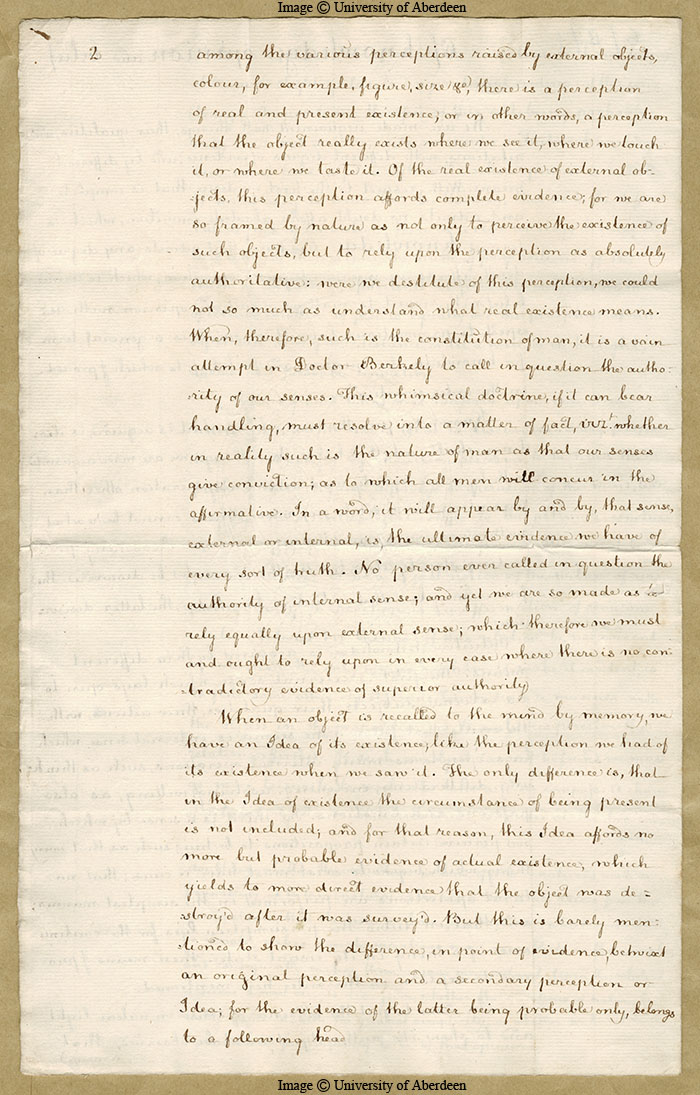 Image © University of Aberdeen
2
among the various perceptions raised by external objects,
colour, for example, figure, size &c, there is a perception
of real and present existence; or in other words, a perception
that the object really exists where we see it, where we touch
it, or where we taste it. Of the real existence of external ob-
-jects, this perception affords complete evidence; for we are
so framed by nature as not only to perceive the existence of
such objects, but to rely upon the perception as absolutely
authoritative: were we destitute of this perception, we could
not so much as understand what real existence means.
When, therefore, such is the constitution of man, it is a vain
attempt in Doctor Berkely to call in question the autho-
rity of our senses. This whimsical doctrine, if it can bear
handling, must resolve into a matter of fact, vizt. whether
in reality such is the nature of man as that our senses
give conviction; as to which all men will concur in the
affirmative. In a word, it will appear by and by, that sense,
external or internal, is, the ultimate evidence we have of
every sort of truth. No person ever called in question the
authority of internal sense; and yet we are so made as to
rely equally upon external sense; which therefore we must
and ought to rely upon in every case where there is no con-
-tradictory evidence of superior authority)
When an object is recalled to the mind by memory, we
have an Idea of its existence, like the perception we had of
its existence when we saw it. The only difference is, that
in the Idea of existence the circumstance of being present
is not included; and for that reason, this Idea affords no
more but probable evidence of actual existence, which
yields to more direct evidence that the object was de-
-stroy'd after it was survey'd. But this is barely men-
-tioned to show the difference, in point of evidence, betwixt
an original perception and a secondary perception or
Idea; for the evidence of the latter being probable only, belongs
to a following head
Image © University of Aberdeen